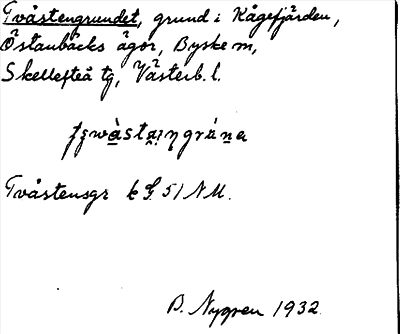 Tvåstengrundet, grund i Kågefjärden,
Östanbäcks ägor, Byske m,
Skellefteå tg, Västerb. l.
Tvåstensgr k G 51 NM.
B. Nygren 1932.